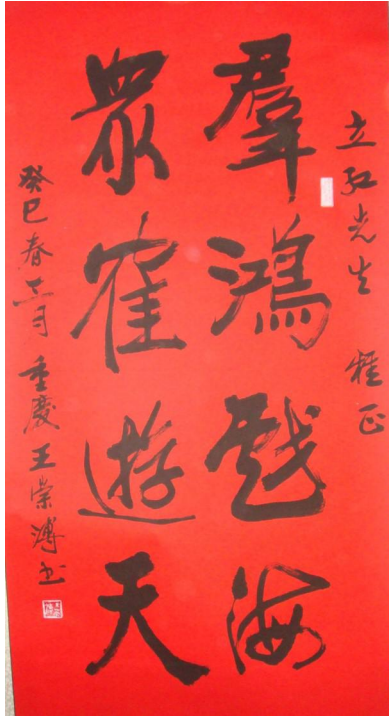 立弘先生 雅正
羣鴻戲海
眾崔遊天
癸巳春三月重慶王崇溥书